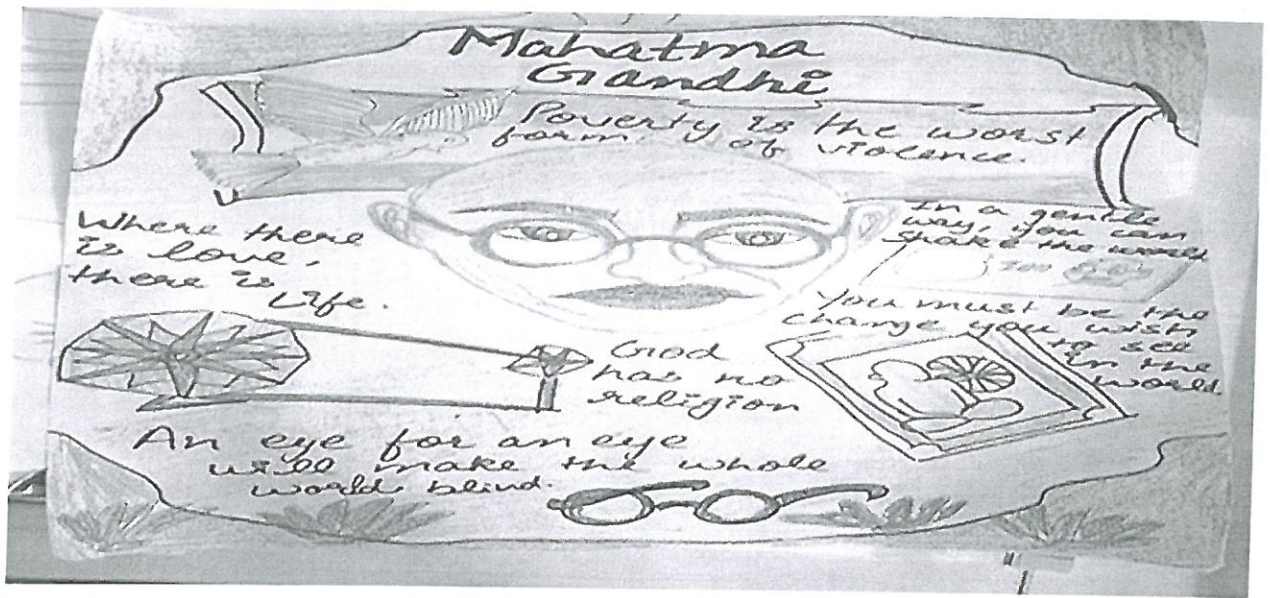 Mahatma
Gandhi
Poverty is the worst
form of violence.
Where there
is love,
there is
Life.
In a gentle
way, you can
shake the world
You must be the
change you wish
to see
in the
world.
God
has no
religion
An eye for an eye
will make the whole
world blind.